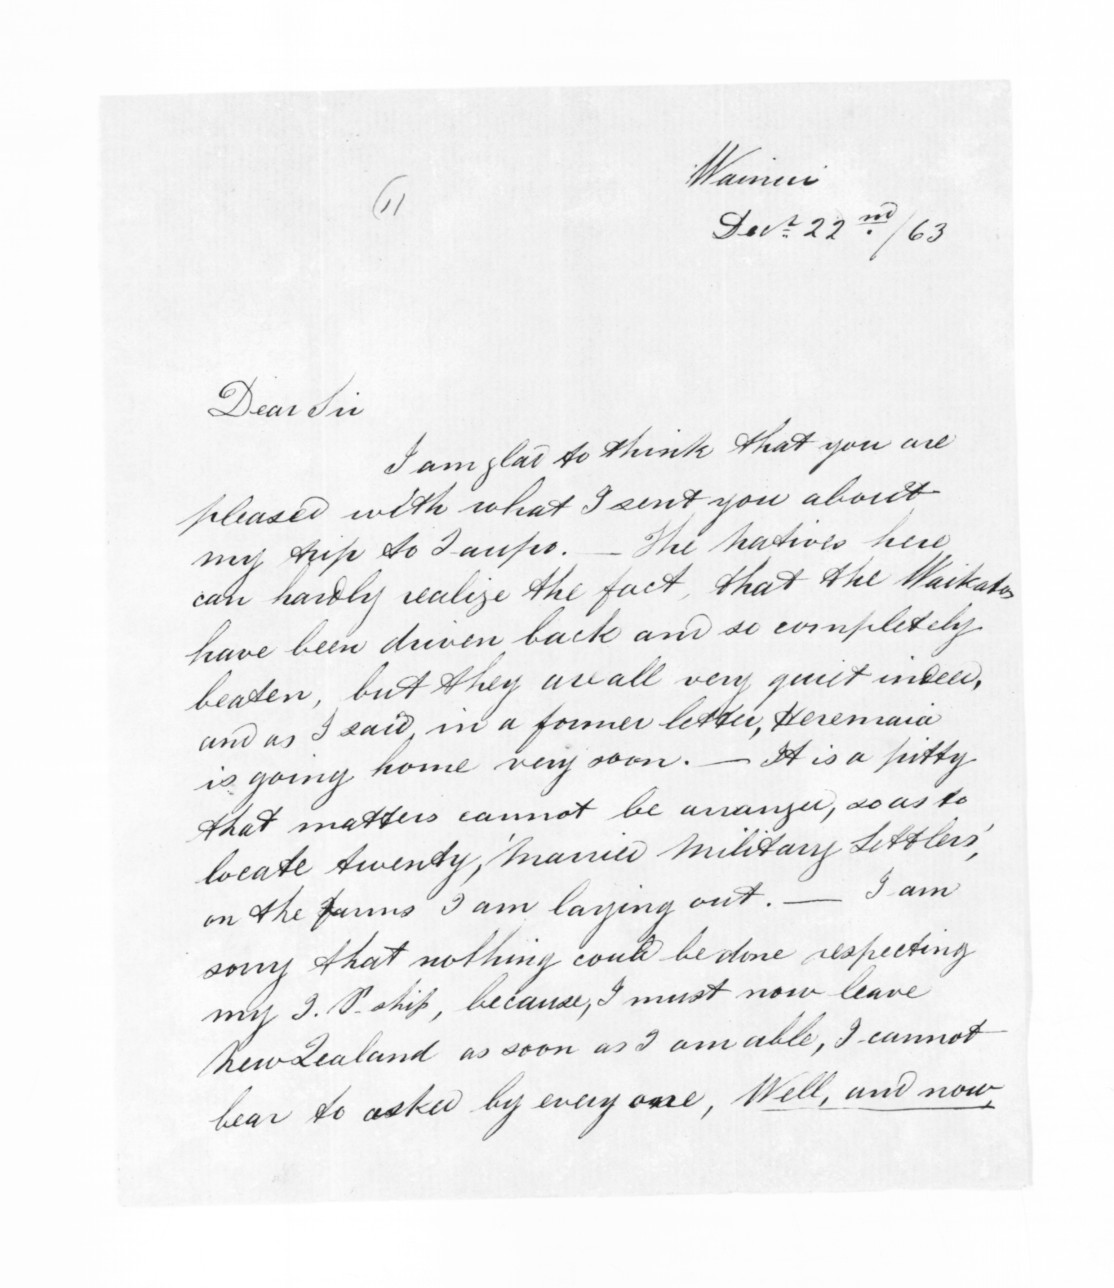 (11
Wainui
Decr. 22nd./63
Dear Sir
I am glad to think that you are
pleased with what I sent you about
my trip to Taupo. — The Natives here
can hardly realize the fact, that the Waikatos
have been driven back and so completely
beaten, but they are all very quiet indeed,
and as I said, in a former letter, Heremaia
is going home very soon. — It is a pitty
that matters cannot be arranged, so as to
locate twenty, 'Married Military Settlers',
on the farms I am laying out. — I am
sorry that nothing could be done respecting
my J. P-ship, because, I must now leave
New Zealand as soon as I am able, I cannot
bear to asked by every one, Well, and now,